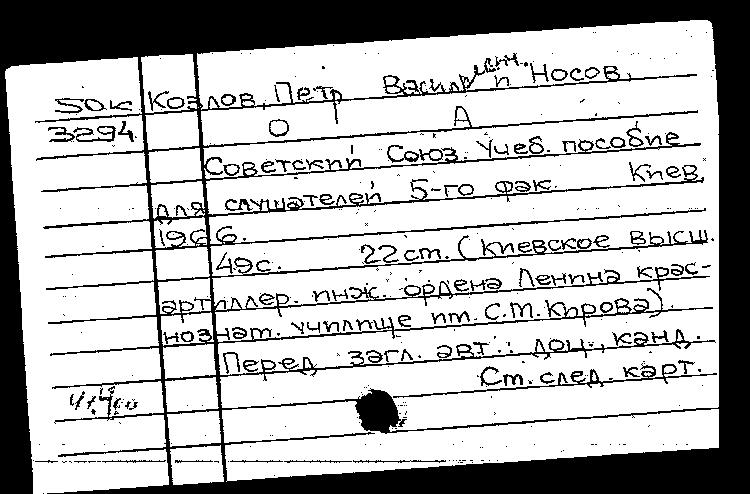 50к Козлов, Петр Васильевич и Носов,
3294 О А
Советский Союз. Учеб. пособие
для слушателей 5-го фак. Киев,
1966.
49с. 22 ст. (Киевское высш.
артиллер. инж. ордена Ленина крас-
нознам. училище им. С.М. Кирова).
Перед загл. авт.: доц., канд.
Ст. след. карт.